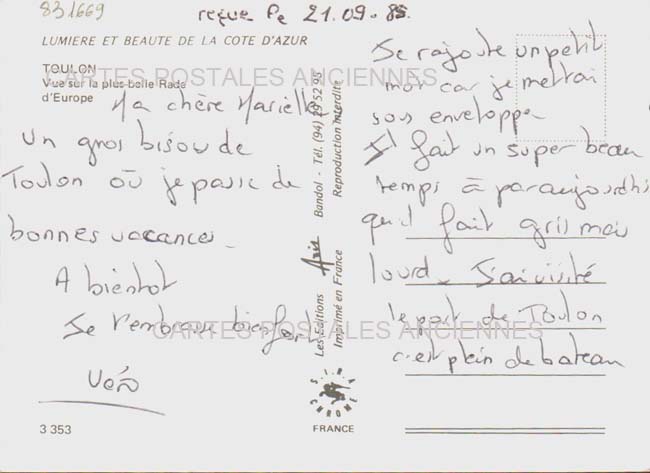 831669
reçue le 21.09.85
LUMIERE ET BEAUTE DE LA COTE D'AZUR
TOULON
Vue sur la plus belle Rade
d'Europe
CARTES POSTALES ANCIENNES
Ma chère Marielle
Un gros bisou de
Toulon où je passe de
bonnes vacances.
A bientôt
Je t'embrasse bien fort
Véro
3 353
Les Editions Azis Bandol - Tél. (94) 29 52 95
Imprimé en France Reproduction Interdite
SIRA CHROME
FRANCE
Je rajoute un petit
mot car je mettrai
sous enveloppe
Il fait un super beau
temps à par aujourdhi
qu'il fait gris mais
lourd. J'ai visité
le port de Toulon
c'est plein de bateau
CARTES POSTALES ANCIENNES